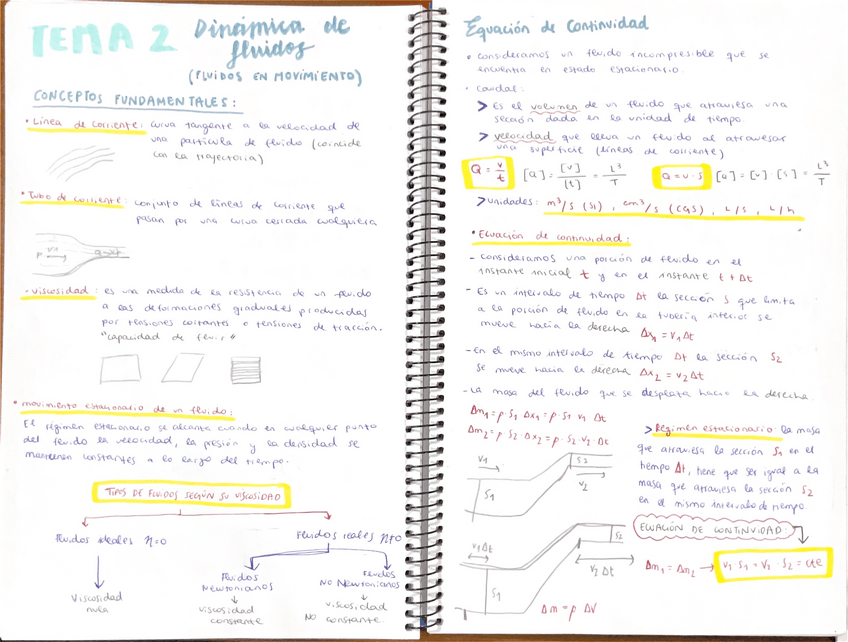 TEMA 2 Dinámica de fluidos
(FLUIDOS EN MOVIMIENTO)
CONCEPTOS FUNDAMENTALES:
• Línea de corriente: curva tangente a la velocidad de
una partícula de fluido (coincide
con la trayectoria)
• Tubo de corriente: conjunto de líneas de corriente que
pasan por una curva cerrada cualquiera
- viscosidad: es una medida de la resistencia de un fluido
a las deformaciones graduales producidas
por tensiones cortantes o tensiones de tracción.
"capacidad de fluir"
• movimiento estacionario de un fluido:
El régimen estacionario se alcanza cuando en cualquier punto
del fluido la velocidad, la presión y la densidad se
mantienen constantes a lo largo del tiempo.
TIPOS DE FLUIDOS SEGÚN SU VISCOSIDAD
Fluidos ideales η=0
Fluidos reales η≠0
Viscosidad
nula
Fluidos
Newtonianos
viscosidad
constante
Fluidos
No Newtonianos
viscosidad
No constante.
Equación de Continuidad
• consideramos un fluido incompresible que se
encuentra en estado estacionario
• caudal:
> Es el volumen de un fluido que atraviesa una
sección dada en la unidad de tiempo.
> velocidad que lleva un fluido al atravesar
una superficie (líneas de corriente)
Q = v/t [Q] = [v]/[t] = L³/T Q = v · s [Q] = [v] · [s] = L³/T
> unidades: m³/s (SI), cm³/s (CGS), L/s, L/h
• Ecuación de continuidad:
- Consideramos una porción de fluido en el
instante inicial t y en el instante t + Δt
- Es un intervalo de tiempo Δt la sección S que limita
a la porción de fluido en la tubería inferior se
mueve hacia la derecha Δx₁ = v₁Δt
- en el mismo intervalo de tiempo Δt la sección S₂
se mueve hacia la derecha Δx₂ = v₂Δt
- La masa del fluido que se desplaza hacia la derecha.
Δm₁ = ρ · S₁ Δx₁ = ρ · S₁ v₁ Δt
Δm₂ = ρ S₂ · Δx₂ = ρ · S₂ v₂ · Δt
> Régimen estacionario: la masa
que atraviesa la sección S₁ en el
tiempo Δt, tiene que ser igual a la
masa que atraviesa la sección S₂
en el mismo intervalo de tiempo
v₁
S₁
S₂
v₂
ECUACIÓN DE CONTINUIDAD:
Δm₁ = Δm₂ → v₁ S₁ = v₂ · S₂ = cte
v₁Δt
S₁
S₂
v₂ Δt
Δm = ρ ΔV